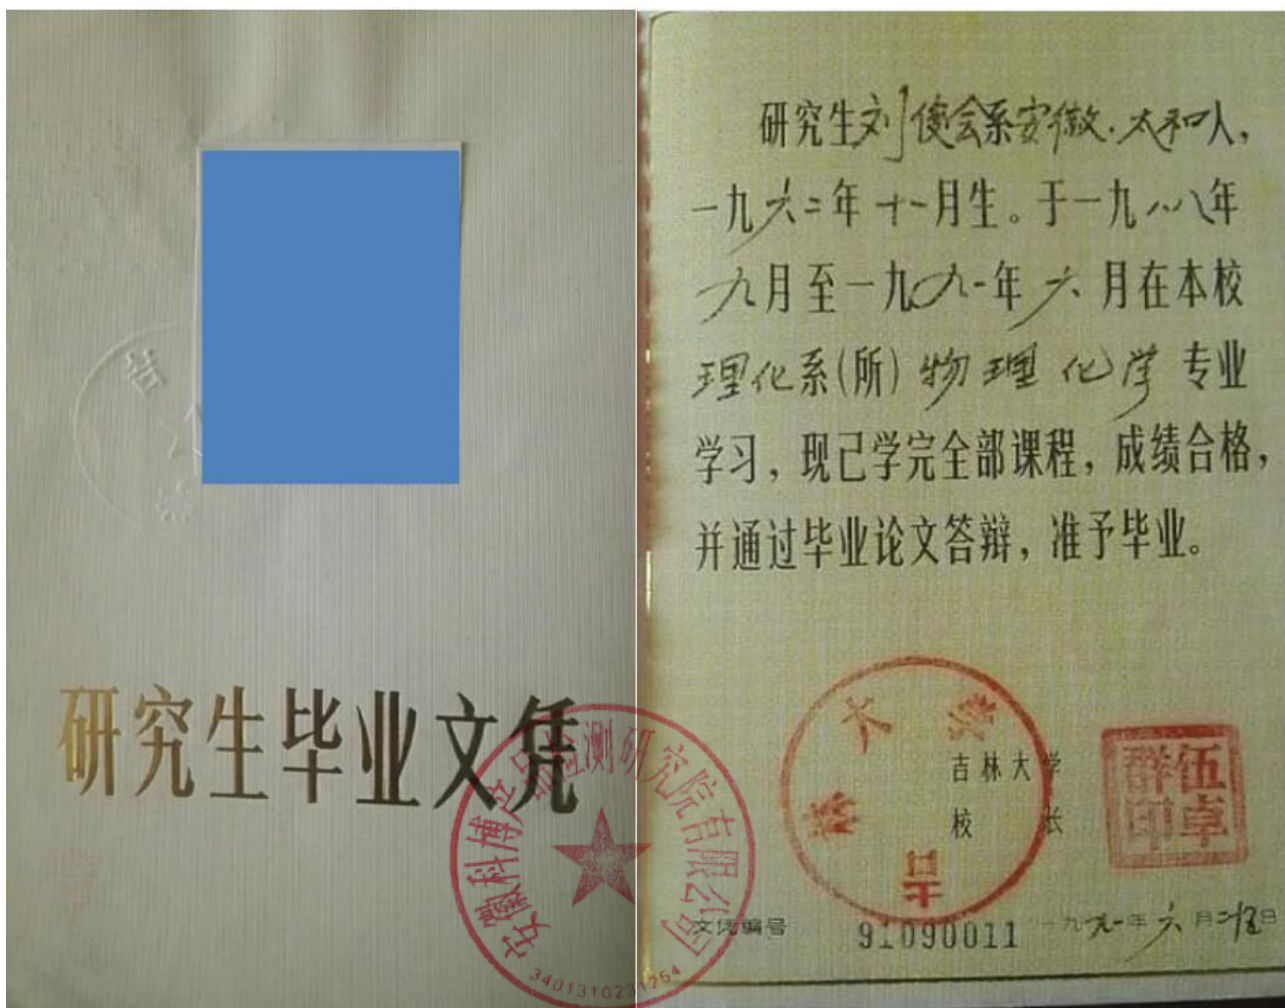 研究生毕业文凭
安徽科博产品检测研究院有限公司
研究生刘俊会系安徽.太和人,
一九六二年十一月生。于一九八八年
九月至一九九一年六月在本校
理化系(所)物理化学专业
学习,现已学完全部课程,成绩合格,
并通过毕业论文答辩,准予毕业。
吉林大学
吉林大学
校长
伍卓群印
文凭编号 91090011 一九九一年六月二十五日